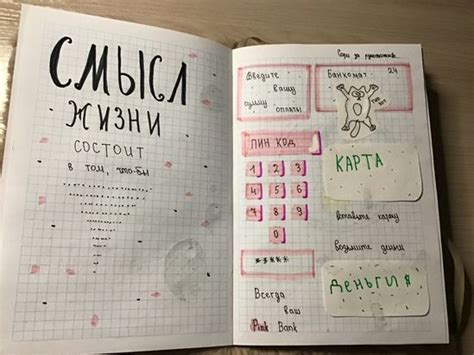 СМЫСЛ
ЖИЗНИ
СОСТОИТ
в том, что-бы
Введите
вашу
сумму
оплаты
Банкомат 24
ПИН КОД
1 2 3
4 5 6
7 8 9
0
*****
Всегда
ваш
Pink Bank
КАРТА
вставьте карту
возьмите деньги
ДЕНЬГИ $